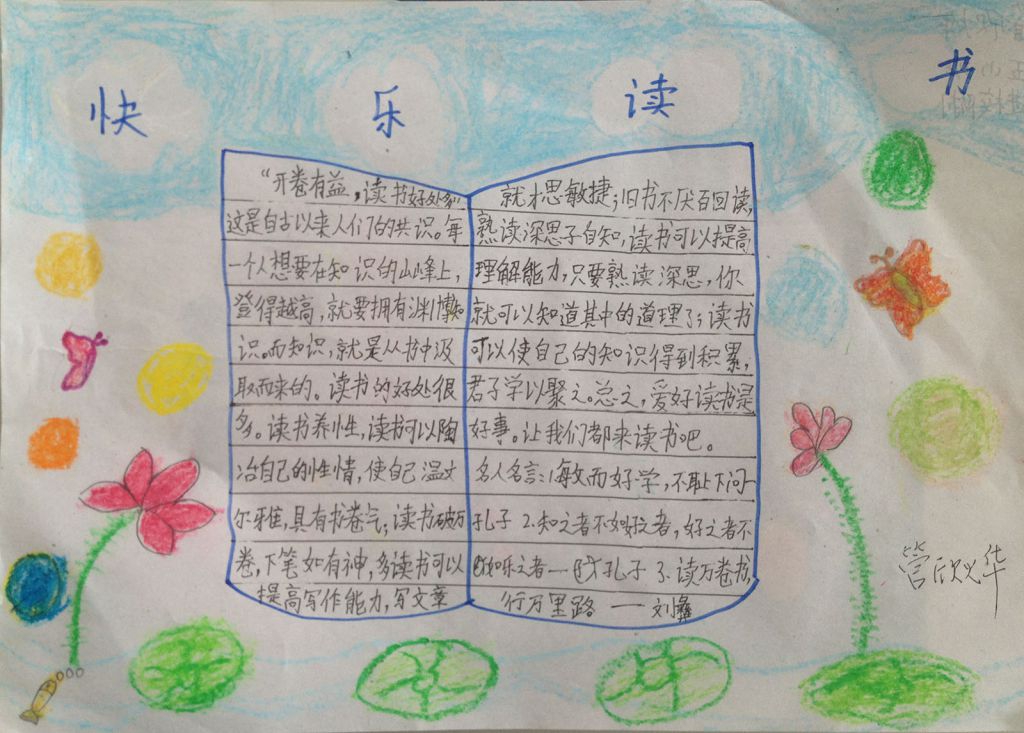 快乐读书
“开卷有益，读书好处多”
这是自古以来人们的共识。每
一个人想要在知识的山峰上，
登得越高，就要拥有渊博知
识。而知识，就是从书中汲
取而来的。读书的好处很
多。读书养性，读书可以陶
冶自己的性情，使自己温文
尔雅，具有书卷气；读书破万
卷，下笔如有神，多读书可以
提高写作能力，写文章
就才思敏捷；旧书不厌百回读，
熟读深思子自知，读书可以提高
理解能力，只要熟读深思，你
就可以知道其中的道理了；读书
可以使自己的知识得到积累，
君子学以聚之。总之，爱好读书是
好事。让我们都来读书吧。
名人名言：1、敏而好学，不耻下问—
孔子 2、知之者不如好之者，好之者不
如乐之者——孔子 3、读万卷书，
行万里路 —— 刘彝
管欣华